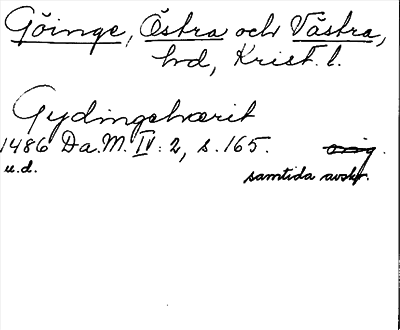 Göinge, Östra och Västra,
hd, Krist. l.
Gydingehærit
1486 Da. M. IV: 2, s. 165. orig.
u.d. samtida avskr.